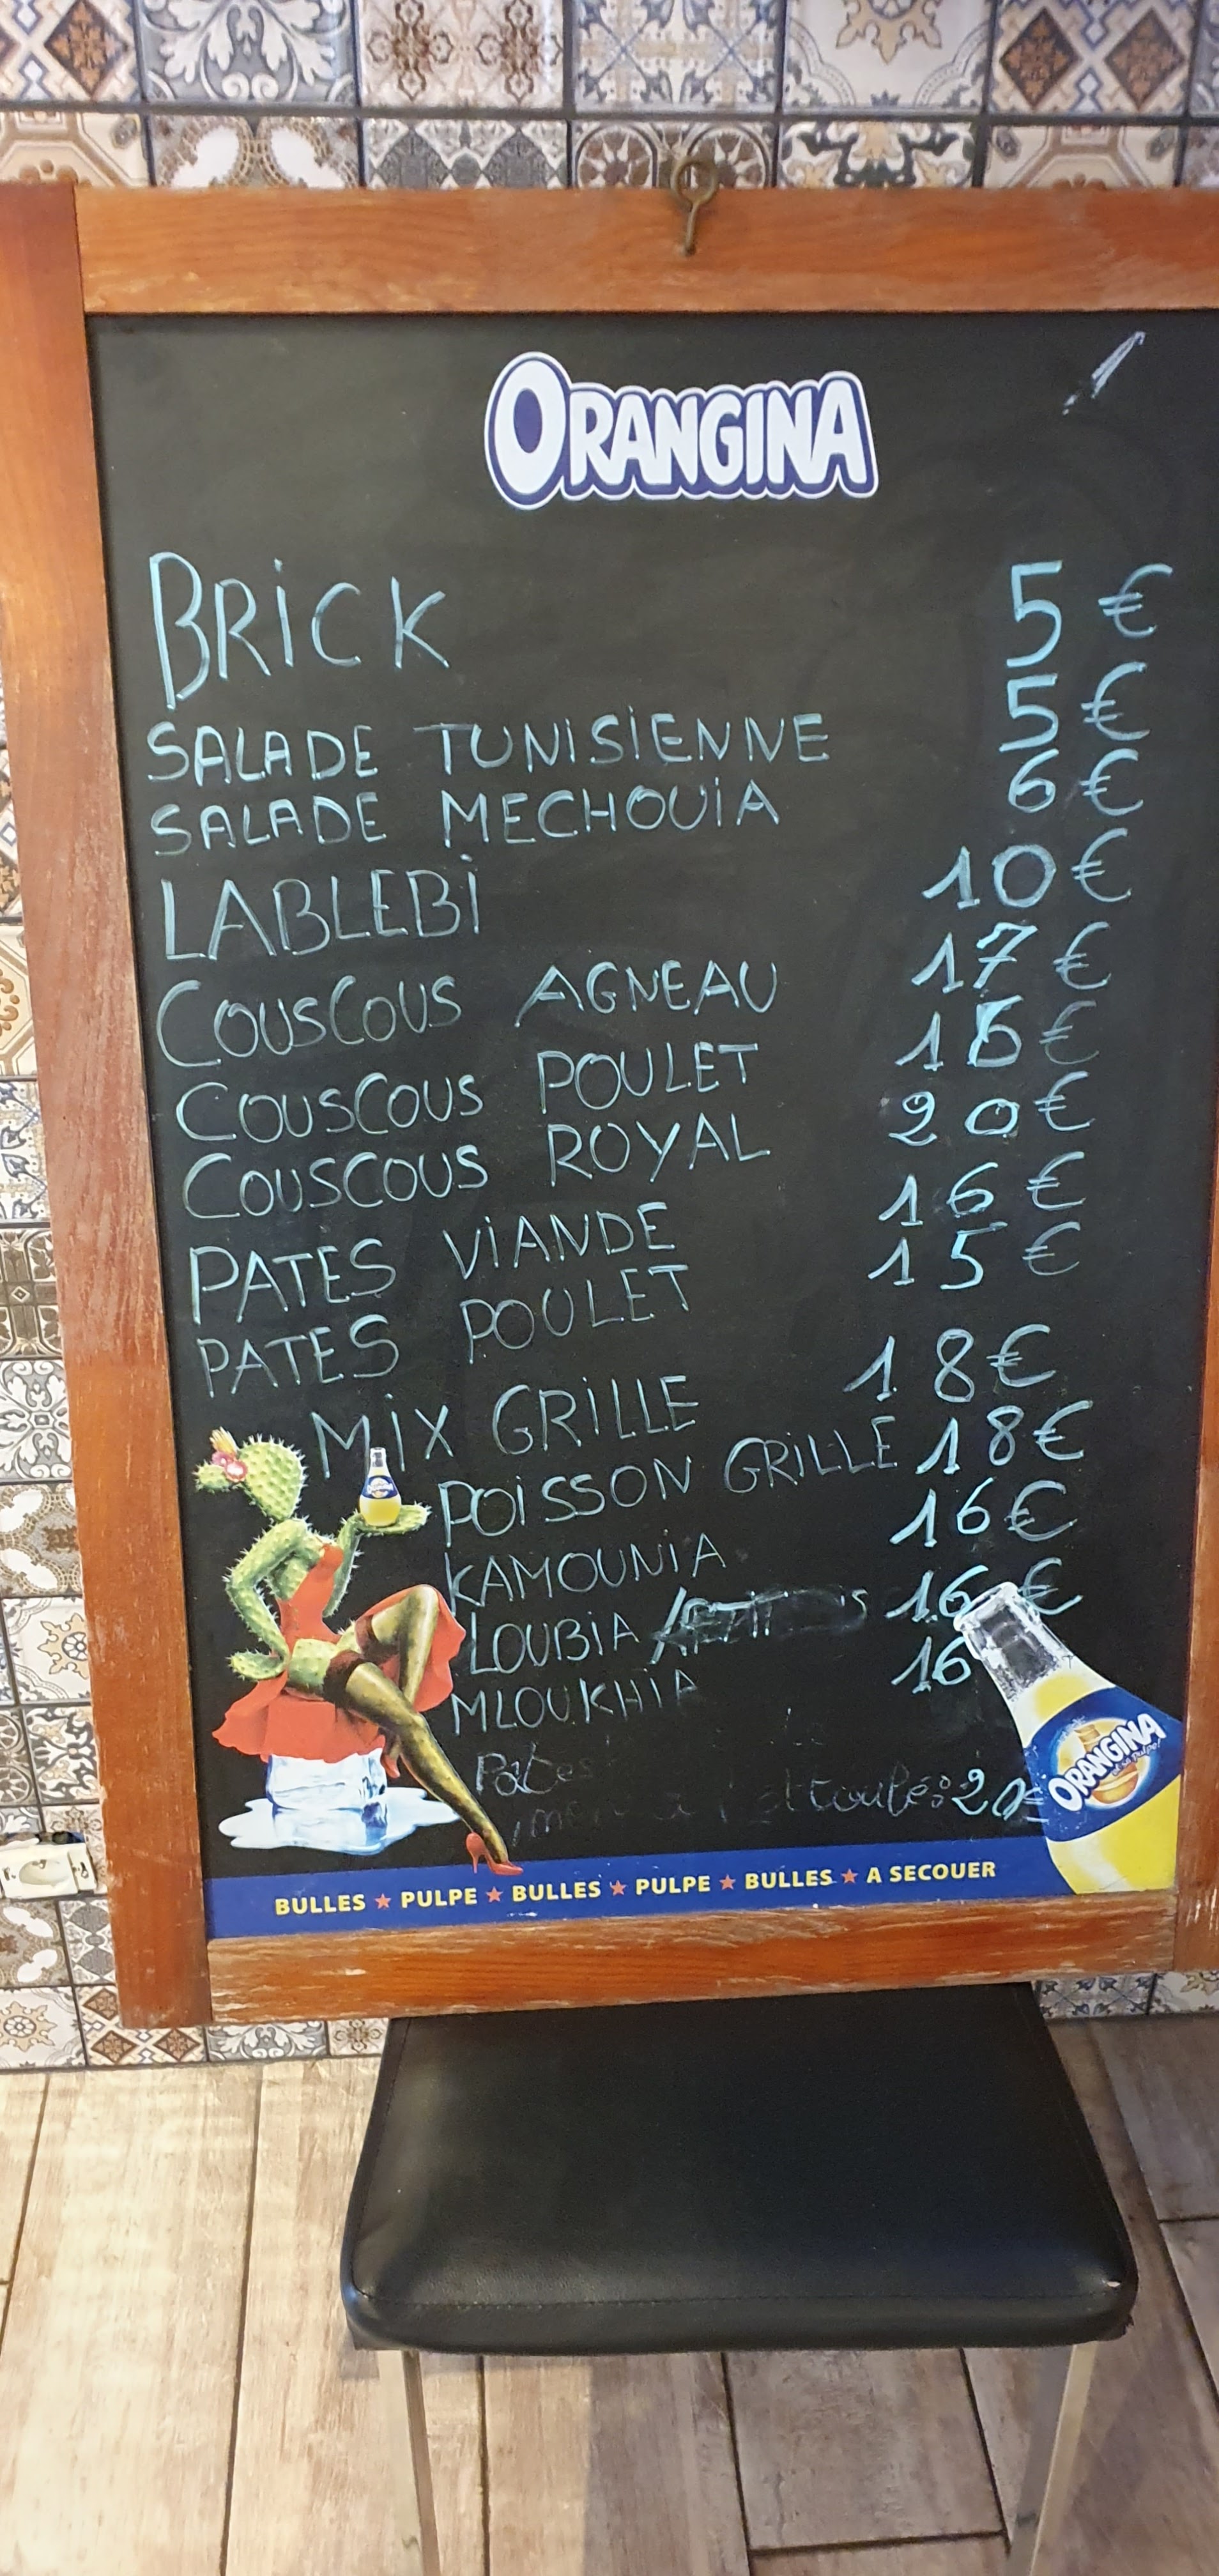 ORANGINA
BRICK 5 €
SALADE TUNISIENNE 5 €
SALADE MECHOUIA 6 €
LABLEBI 10 €
COUSCOUS AGNEAU 17 €
COUSCOUS POULET €
COUSCOUS ROYAL 20 €
PATES VIANDE 16 €
PATES POULET 15 €
MIX GRILLE 18 €
POISSON GRILLE 18 €
KAMOUNIA 16 €
LOUBIA 16 €
MLOUKHIA 16
Pates
20€
ORANGINA
BULLES ★ PULPE ★ BULLES ★ PULPE ★ BULLES ★ A SECOUER